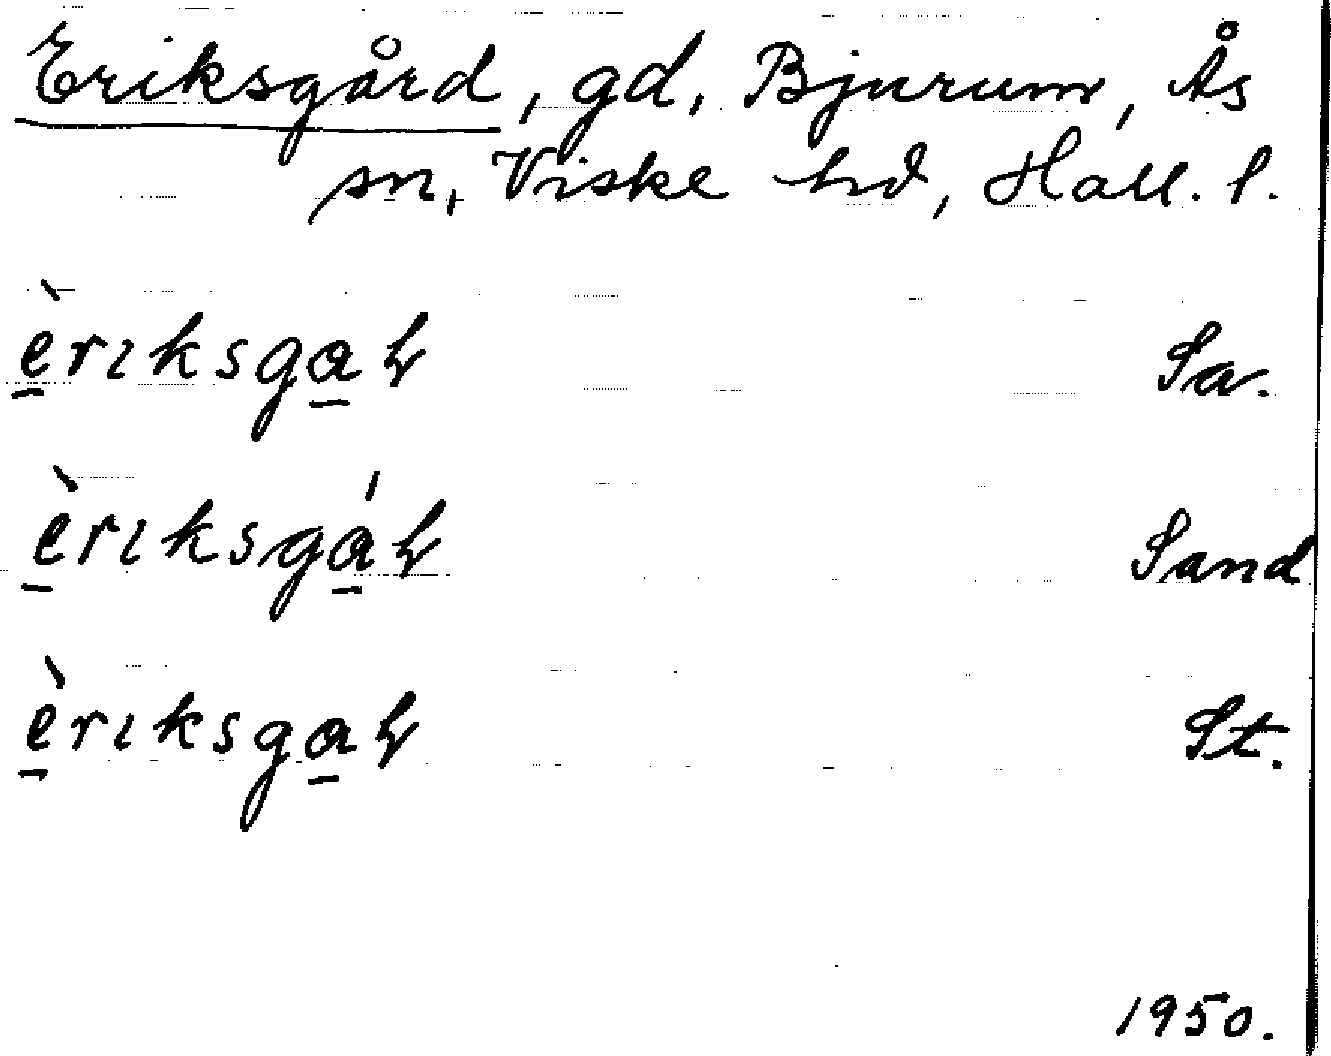 Eriksgård, gd, Bjurum, Ås
sn, Viske hd, Hall. l.
Sa.
Sand
St.
1950.